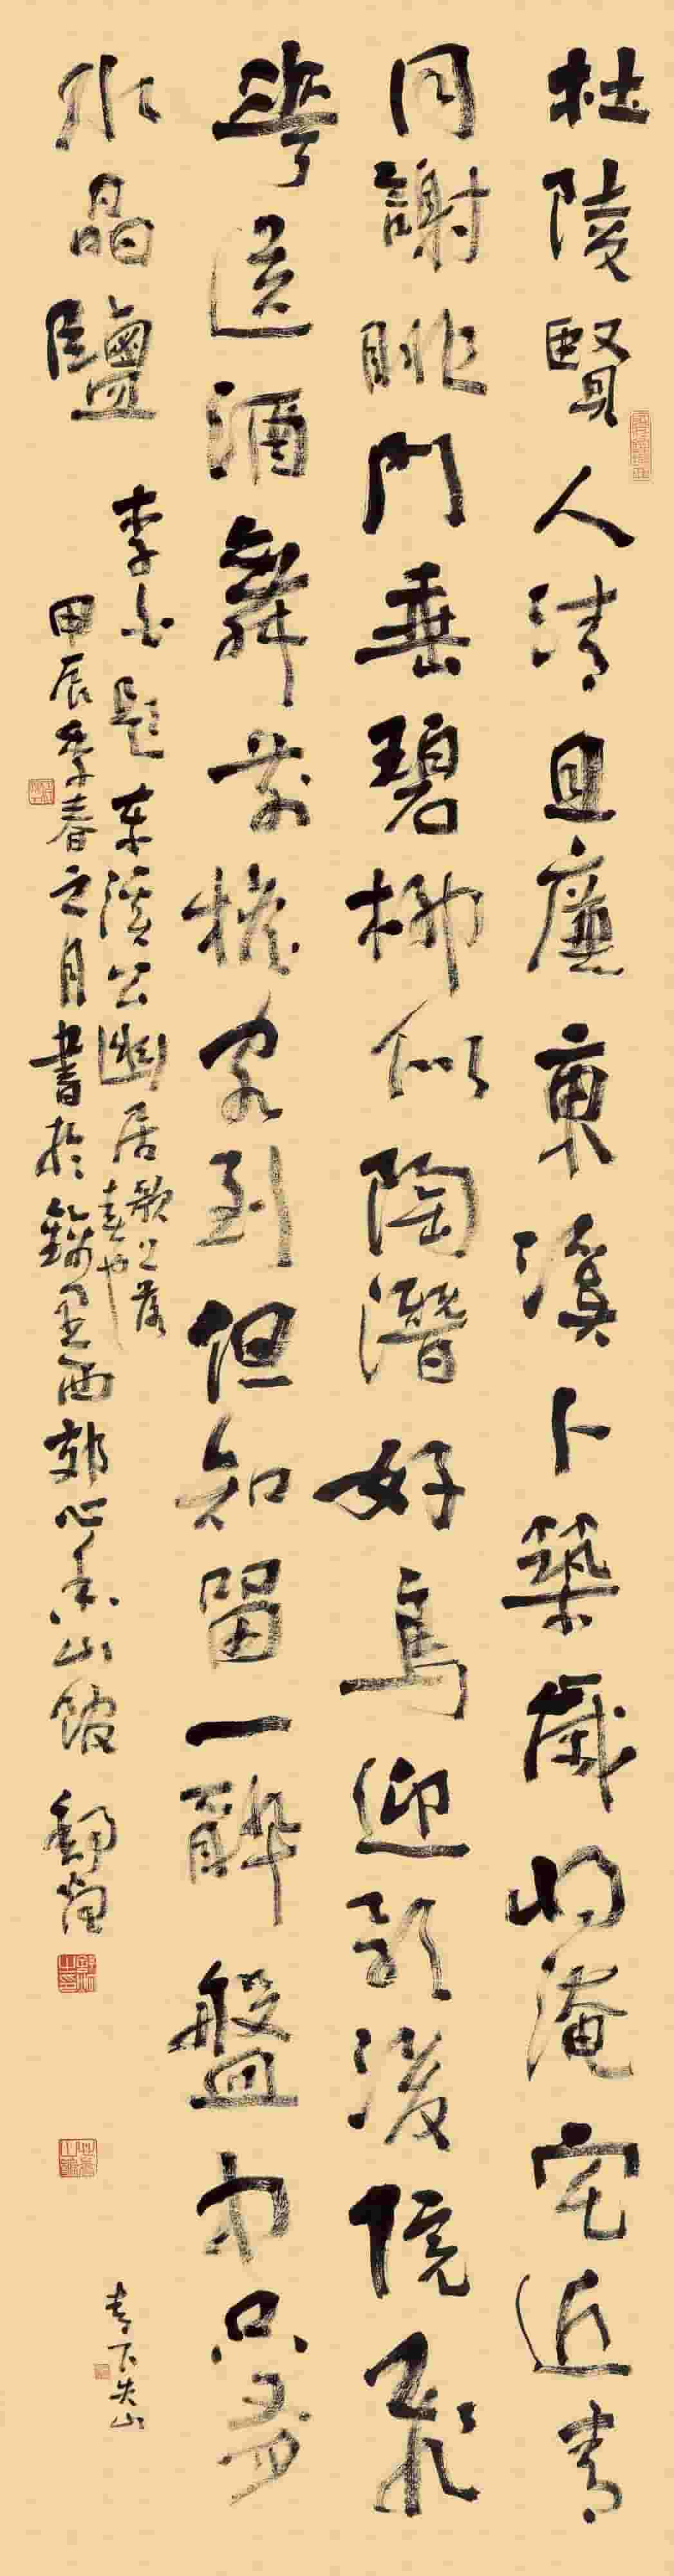 杜陵賢人清且廉東溪卜築歲將淹宅近青
同謝朓門垂碧柳似陶潛好鳥迎歌後院飛
華送酒舞前檐客到但知留一醉盤中只有
水晶鹽
李白題東溪公幽居
歌上落
春也
甲辰季春之月書於錦里西郊心山館
青下失山